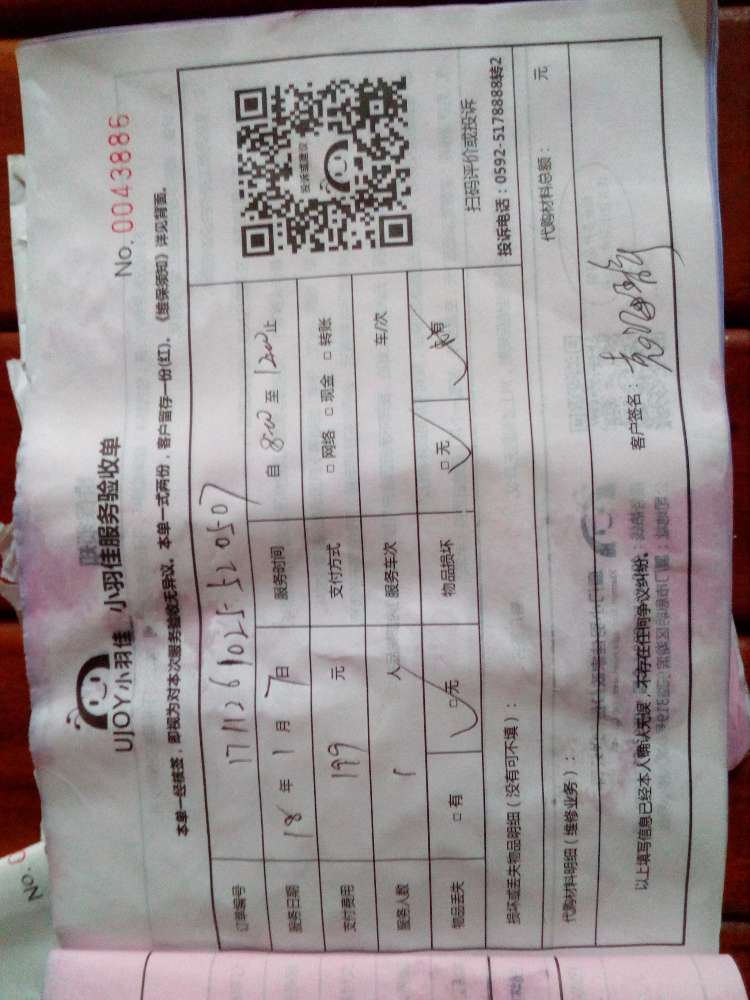 UJOY小羽佳 小羽佳服务验收单
No. 0043886
本单一经核签，即视为对本次服务验收无异议。本单一式两份，客户留存一份(红)。《维保须知》详见背面。
订单编号 1711261025520507
服务日期 18 年 1 月 7 日 服务时间 自 8:00 至 12:00 止
支付费用 199 元 支付方式 □ 网络 □ 现金 □ 转账
服务人数 1 人 服务车次 车/次
物品丢失 □ 有 □ 无 物品损坏 □ 无
投诉或建议
扫码评价或投诉
投诉电话：0592-5178888转2
损坏或丢失物品明细（没有可不填）：
代购材料明细（维修业务）： 代购材料总额： 元
以上填写信息已经本人确认无误，不存在任何争议纠纷。 客户签名：
No.